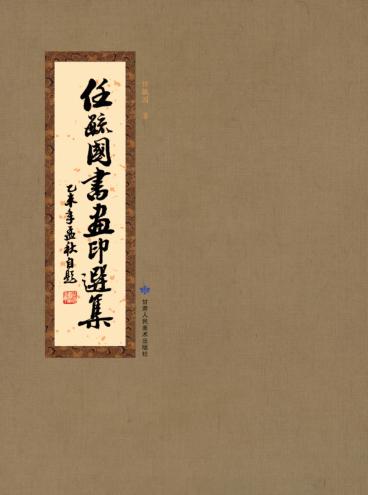 任毓國 著
任毓國書畫印選集
乙未年孟秋自題
甘肃人民美术出版社